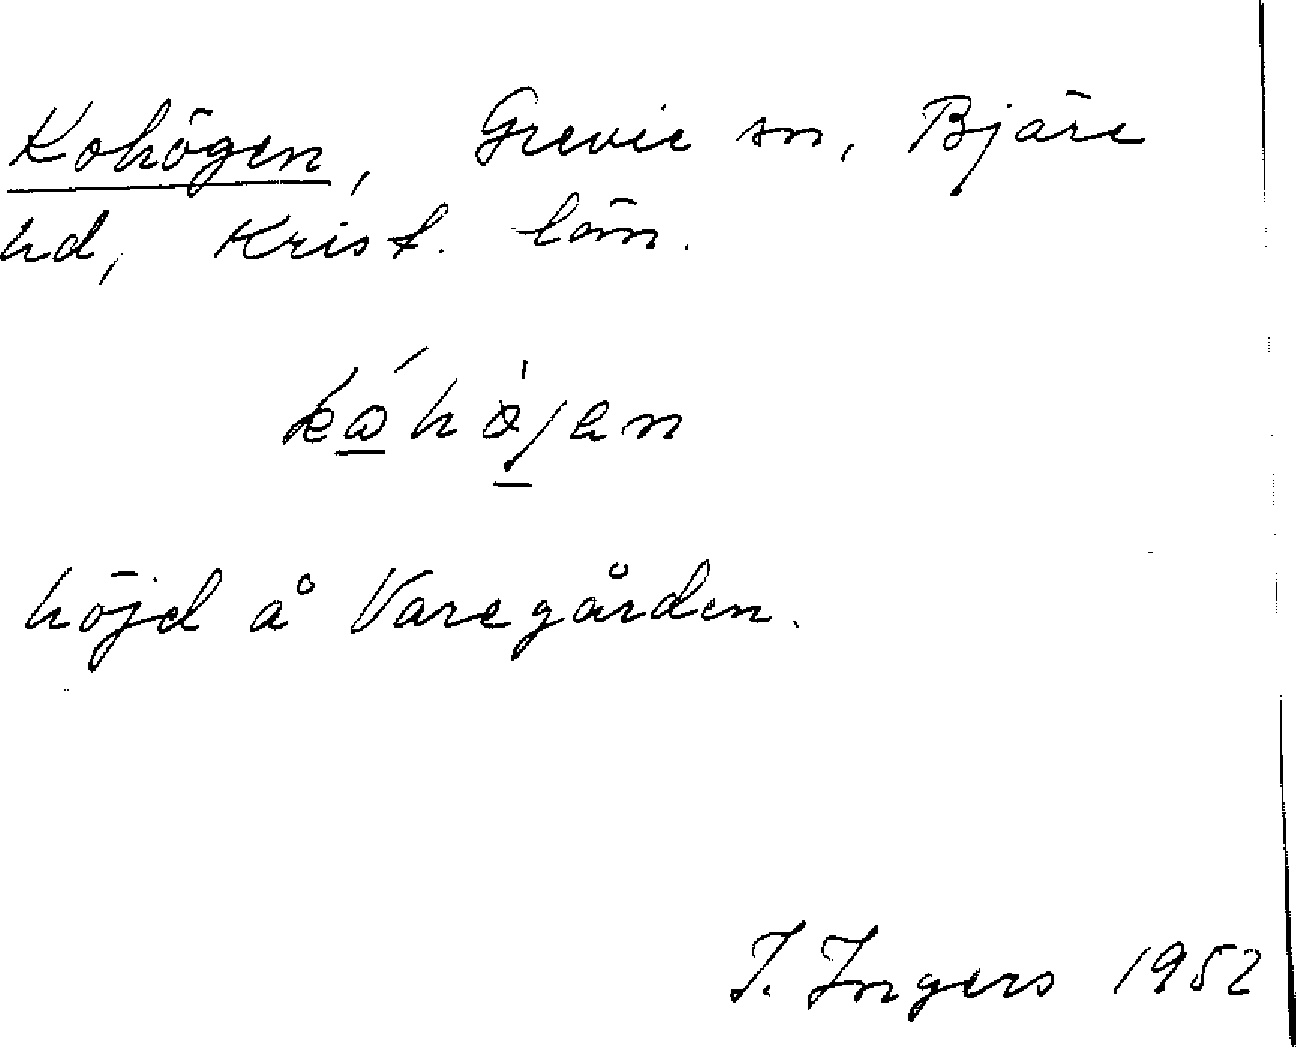 Kohögen, Grevie sn, Bjäre
hd, Krist. län.
höjd å Varegården.
I. Ingers 1952